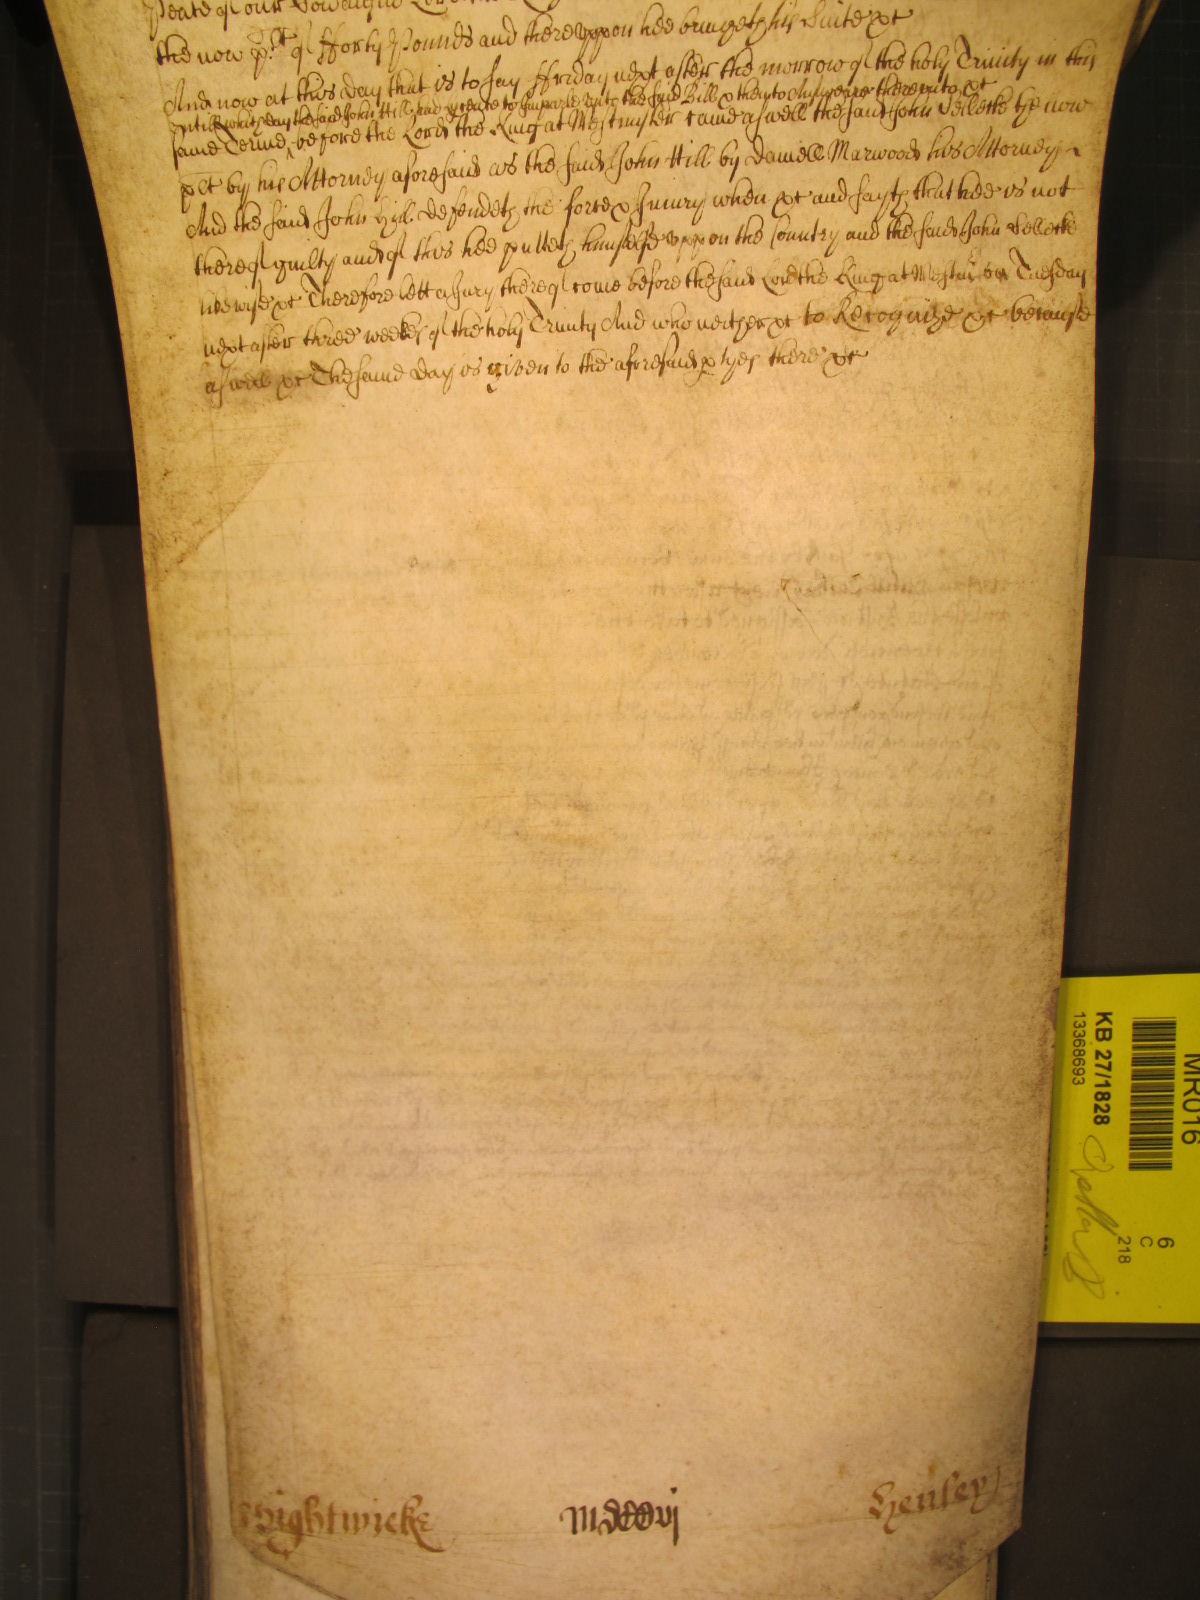 Peace of our Soveraigne Lord
the now plt of fforty Pounds and thereuppon hee bringeth his Suite &c
And now at this day that is to say ffriday next after the morrow of the holy Trinity in this
untill which day the said John Hill had licence to Imparle unto the said Bill & then to Answeare thereunto &c
same Terme before the Lord the King at Westminster came aswell the said John Sellecke the now
plt by his Attorney aforesaid as the said John Hill by Daniell Marwood his Attorney
And the said John Hill defendeth the force & Injury when &c and sayth that hee is not
thereof guilty and of this hee putteth himselfe uppon the Country and the said John Sellecke
likewise &c Therefore lett a Jury thereof come before the said Lord the King at Westmr on Tuesday
next after three weekes of the holy Trinity And who neither &c to Recognize &c because
aswell &c The same day is given to the aforesaid ptyes there &c
Hightwicke mdccvi Henley
KB 27/1828
13368693
MR016
6
C
218